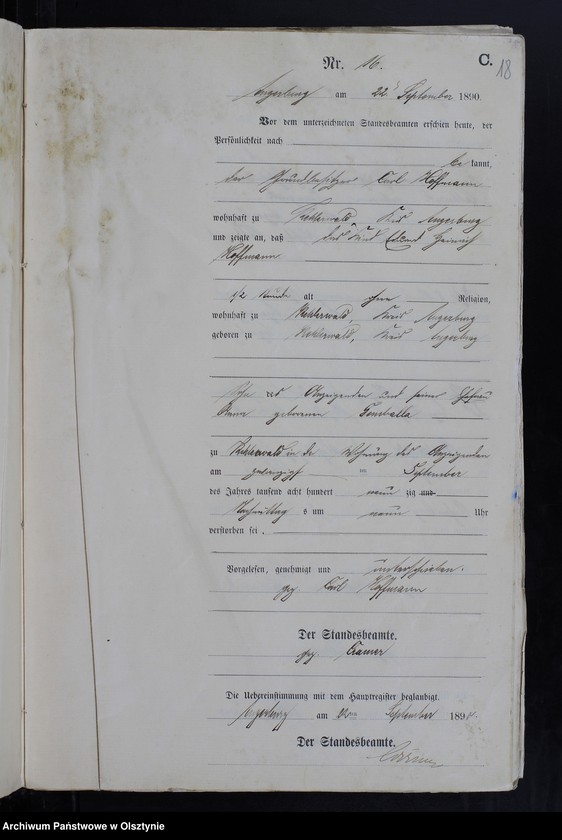 Nr. 16.
C.
18
Angerburg am 22 September 1890.
Vor dem unterzeichneten Standesbeamten erschien heute, der
Persönlichkeit nach
be kannt,
der Grundbesitzer Carl Hoffmann
wohnhaft zu Kreis Angerburg
und zeigte an, daß das Kind Eduard Heinrich
Hoffmann
1/2 Stunde alt ohne Religion,
wohnhaft zu Kreis Angerburg
geboren zu Kreis Angerburg
Sohn des Anzeigenden und seiner Ehefrau
geborenen
zu in der Wohnung des Anzeigenden
am zwanzigst en September
des Jahres tausend acht hundert neun zig und
Nachmittag s um neun Uhr
verstorben sei.
Vorgelesen, genehmigt und unterschrieben.
gez. Carl Hoffmann
Der Standesbeamte.
gez. Cramer
Die Uebereinstimmung mit dem Hauptregister beglaubigt.
Angerburg am 22ten September 1890.
Der Standesbeamte.
Cramer
Archiwum Państwowe w Olsztynie